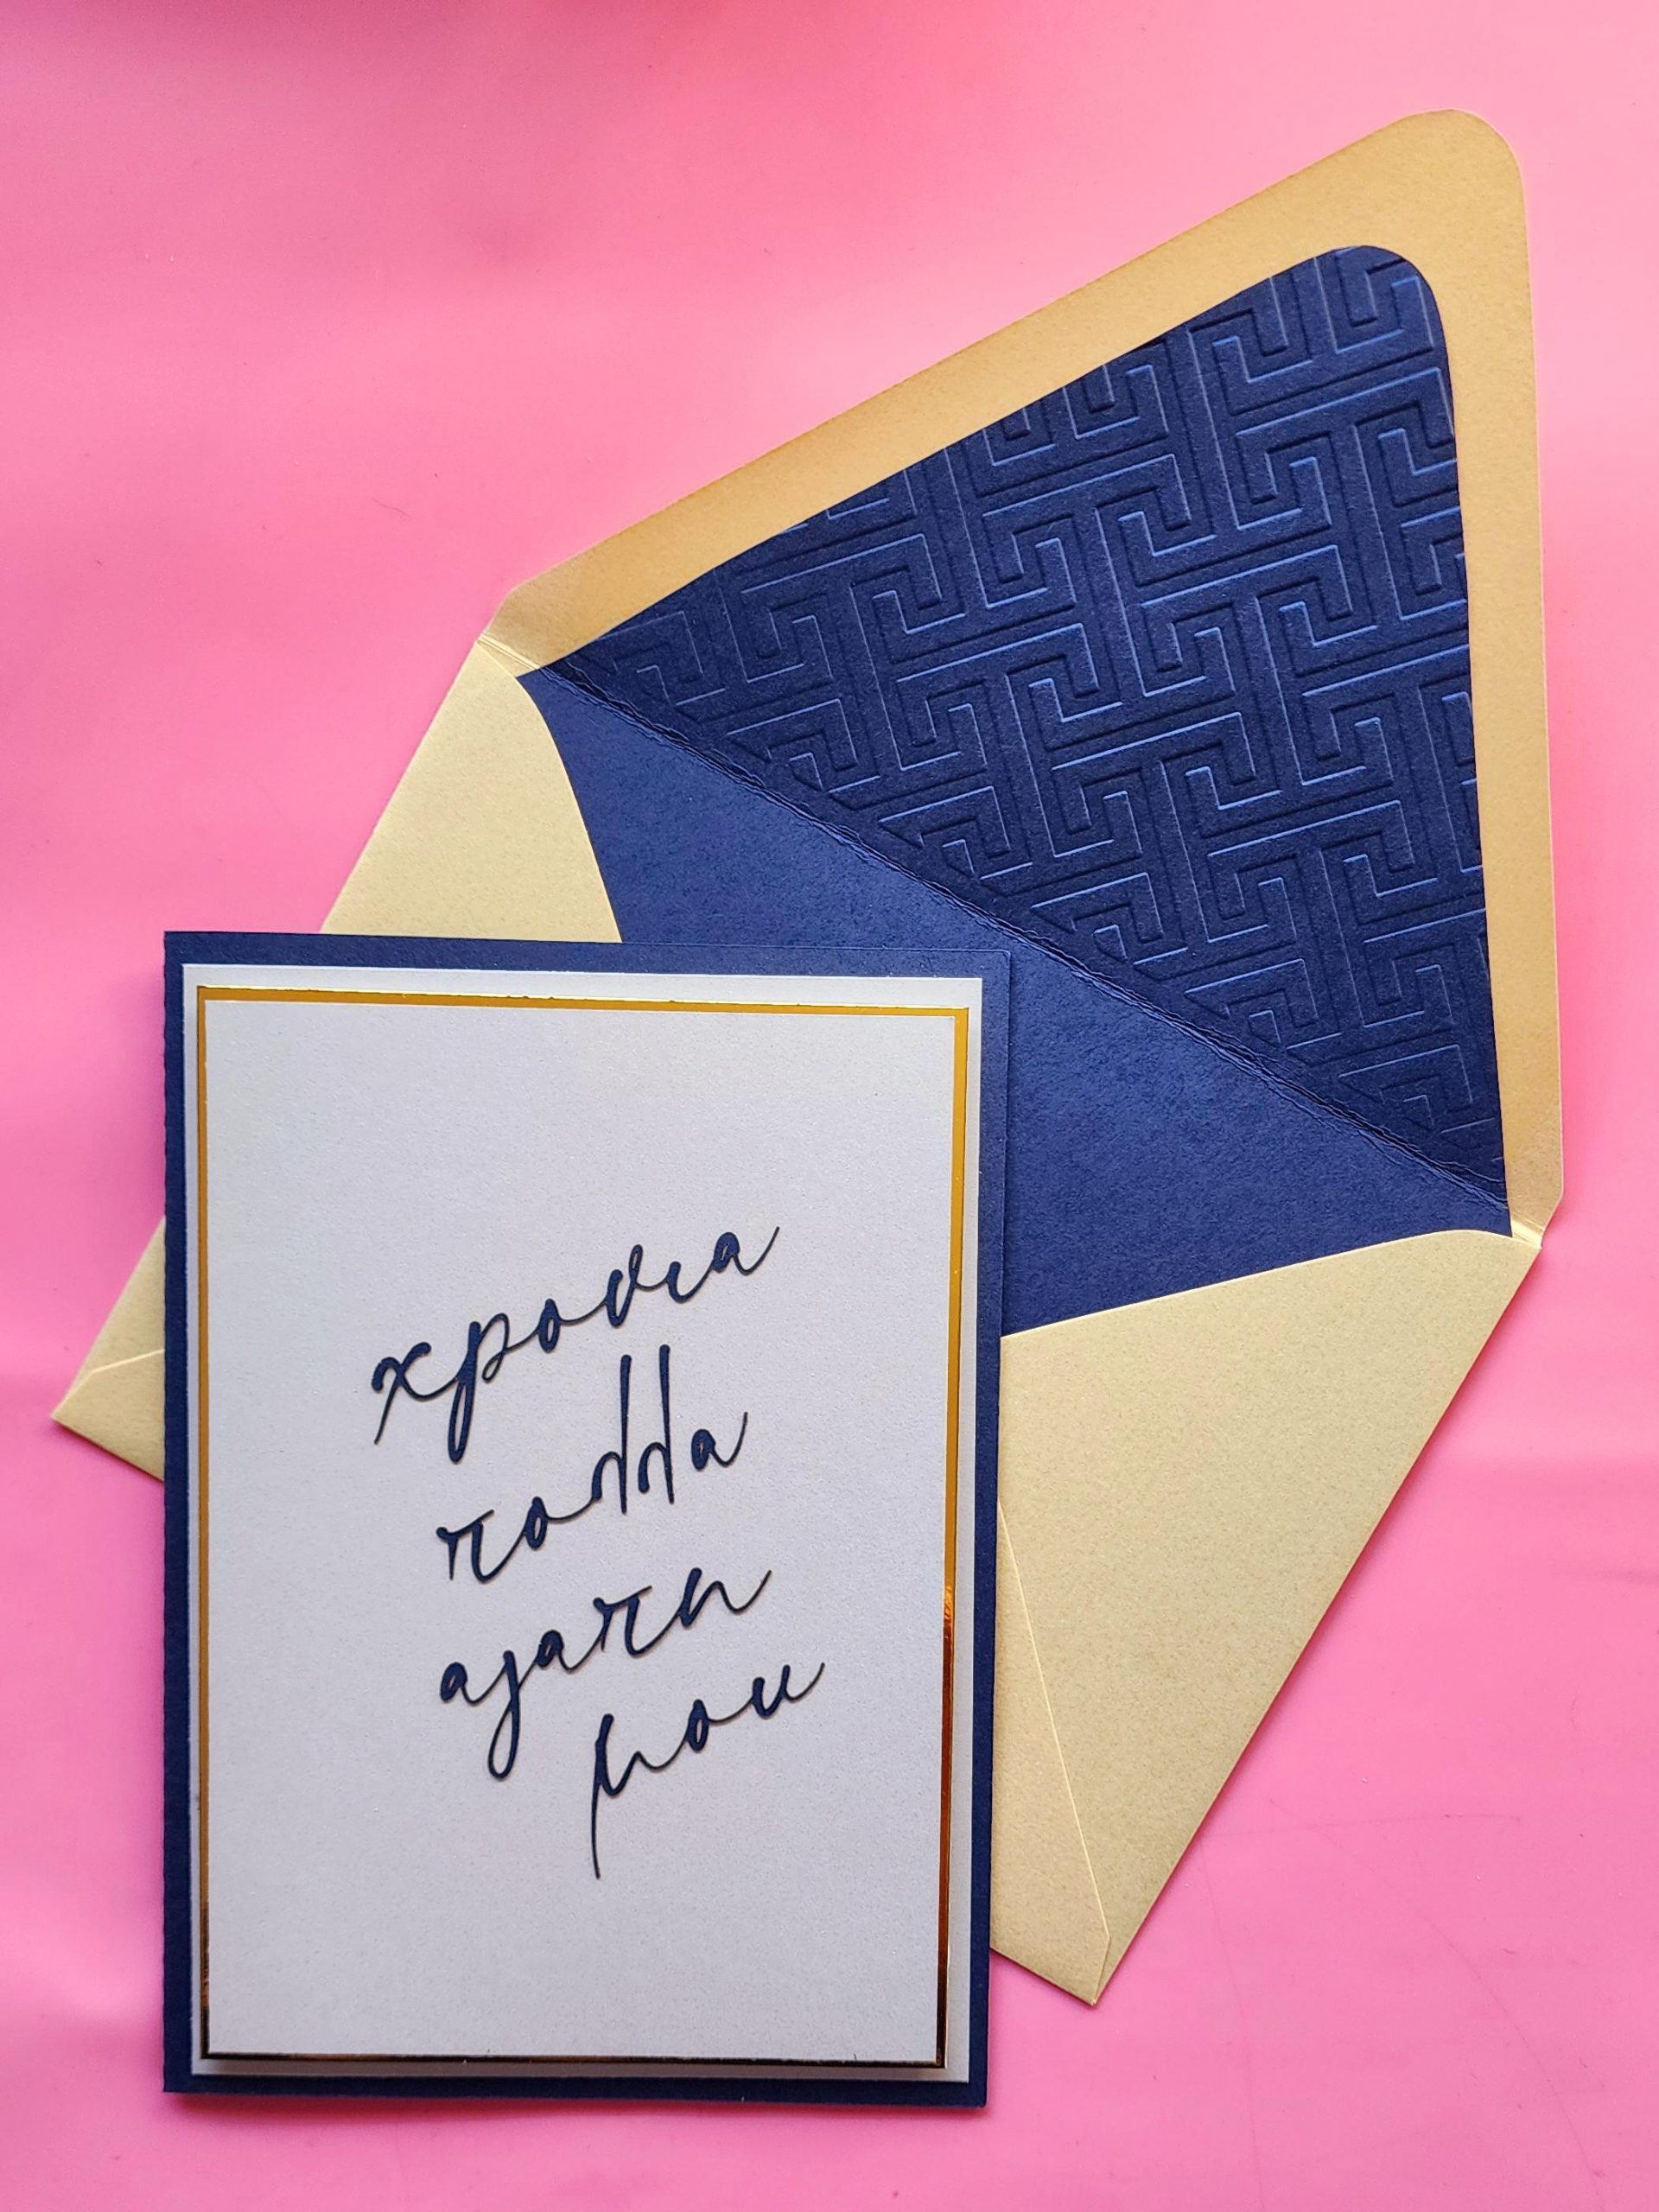 χρονια
πολλα
αγαπη
μου